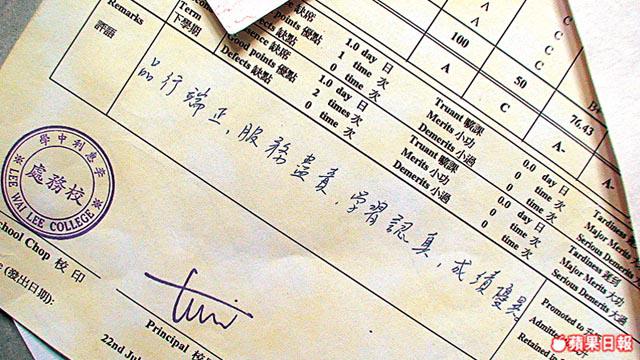 Remarks
評語
Term
下學期
缺席
points 優點
Defects 缺點
sence 缺席
Good points 優點
Defects 缺點
1.0 day 日
1 time 次
0 time 次
1.0 day 日
2 times 次
0 time 次
Truant 曠課
Merits 小功
Demerits 小過
Truant 曠課
Merits 小功
Demerits 小過
0.0 day 日
0 time 次
0 time 次
0.0 day 日
0 time 次
0 time 次
Tardiness
Major Merits
Serious Demerits
Tardiness 遲到
Major Merits 大功
Serious Demerits 大過
A
A
100
A
C
C
C
50
C
A
A-
76.43
A-
品行端正,服務盡責,學習認真,成績優異。
李惠利中學
校務處
LEE WAI LEE COLLEGE
School Chop 校印
(發出日期):
Principal 校
22nd Jul
Promoted to
Admitted
Retained in
蘋果日報